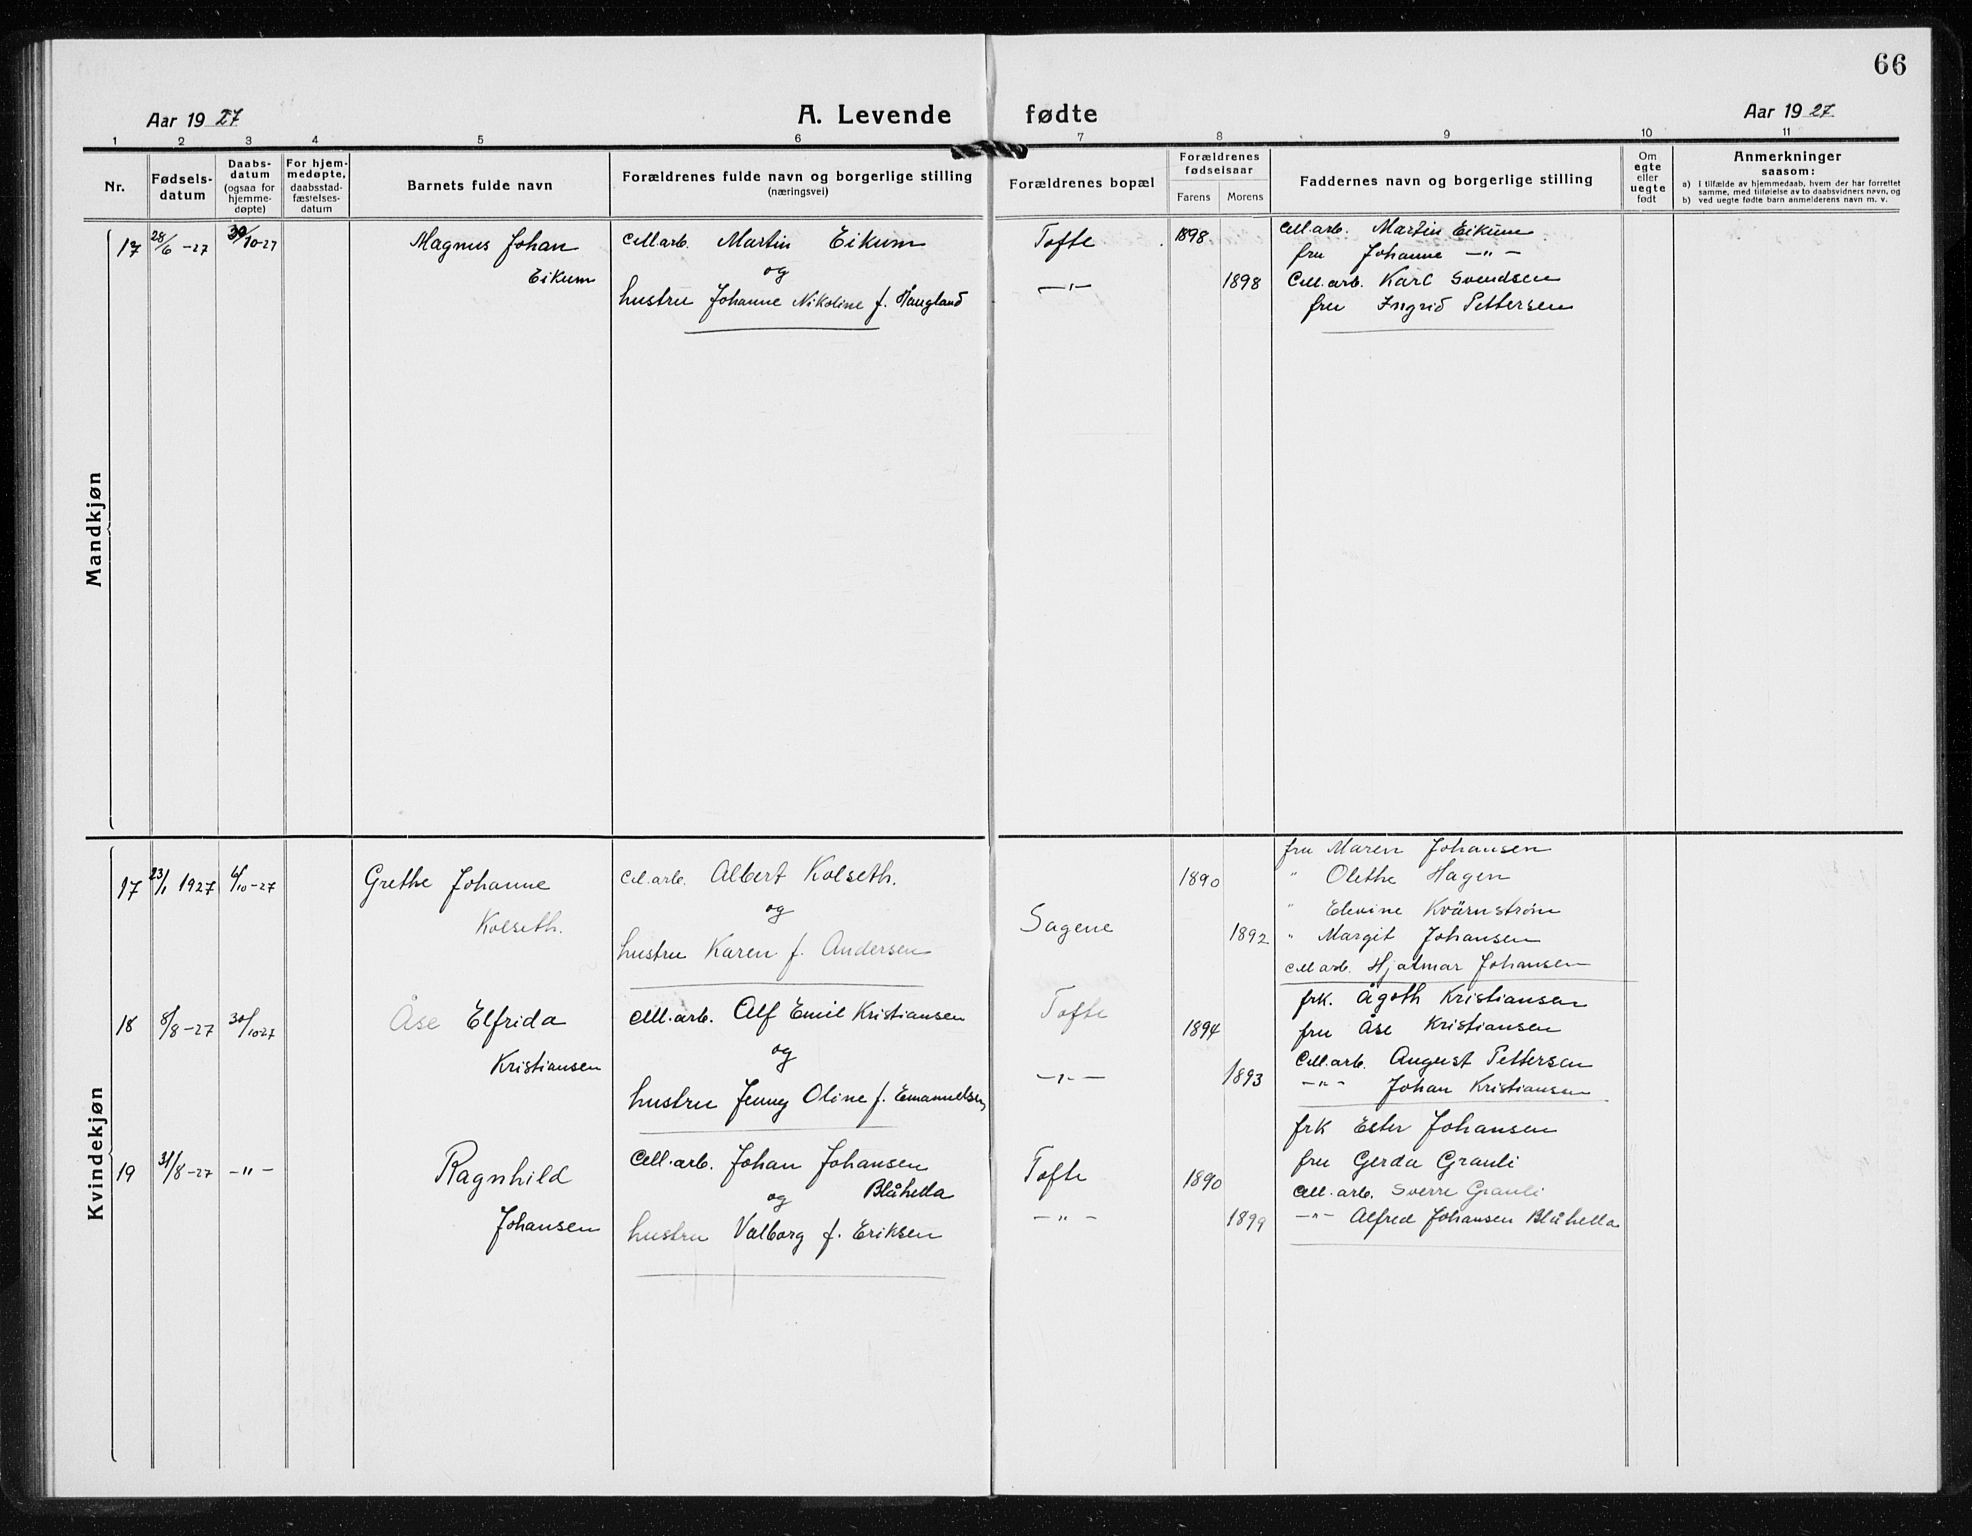 66
Aar 1927
A. Levende fødte
Aar 1927
1 2 3 4 5 6 7 8 9 10 11
Nr.
Fødsels-
datum
Daabs-
datum
(ogsaa for
hjemme-
døpte)
For hjem-
medøpte,
daabsstad-
fæstelses-
datum
Barnets fulde navn
Forældrenes fulde navn og borgerlige stilling
(næringsvei)
Forældrenes bopæl
Forældrenes
fødselsaar
Farens Morens
Faddernes navn og borgerlige stilling
Om
egte
eller
uegte
født
Anmerkninger
saasom:
a) i tilfælde av hjemmedaab, hvem der har forrettet
samme, med tilføielse av to daabsvidners navn, og
b) ved uegte fødte barn anmelderens navn m. v.
Mandkjøn
17 28/6 -27 30/10-27
Magnus Johan
Eikum
Cell.arb. Martin Eikum
og
hustru Johanne Nikoline f. Haugland
Tofte
—"—
1898
1898
Cell.arb. Martin Eikum
fru Johanne —"—
Cell.arb. Karl Svendsen
fru Ingrid Pettersen
Kvindekjøn
17 23/1 1927 6/10-27
Grethe Johanne
Kolseth.
Cel.arb. Albert Kolseth.
og
hustru Karen f. Andersen
Sagene
1890
1892
fru Maren Johansen
" Olethe Hagen
" Elevine Kvärnström
" Margit Johansen
Cell arb. Hjalmar Johansen
18 8/8 -27 30/10-27
Åse Elfrida
Kristiansen
Cell.arb. Alf Emil Kristiansen
og
hustru Jenny Oline f. Emanuelsen
Tofte
—"—
1894
1893
frk. Ågoth Kristiansen
fru Åse Kristiansen
Cell.arb. August Pettersen
—"— Johan Kristiansen
19 31/8 -27 —"—
Ragnhild
Johansen
Cell.arb. Johan Johansen
og Blåhella
hustru Valborg f. Eriksen
Tofte
—"—
1890
1899
frk Ester Johansen
fru Gerda Granli
Cell.arb. Sverre Granli
—"— Alfred Johansen Blåhella